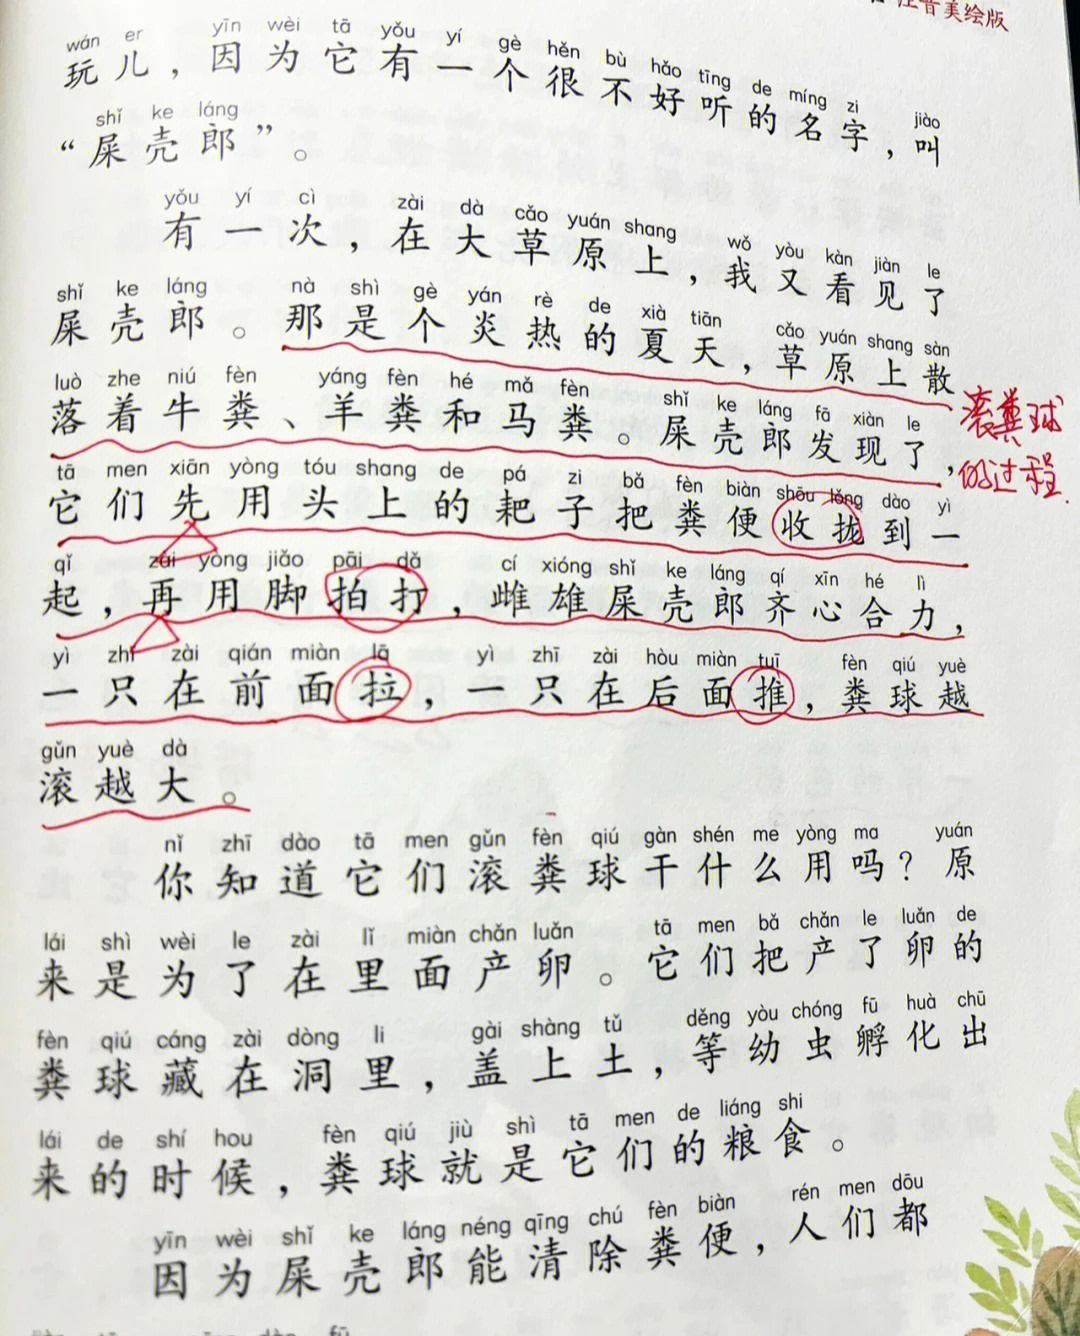 注音美绘版
wán er yīn wèi tā yǒu yí gè hěn bù hǎo tīng de míng zi jiào
玩儿，因为它有一个很不好听的名字，叫
shǐ ke láng
“屎壳郎”。
yǒu yí cì zài dà cǎo yuán shang wǒ yòu kàn jiàn le
有一次，在大草原上，我又看见了
shǐ ke láng nà shì gè yán rè de xià tiān cǎo yuán shang sàn
屎壳郎。那是个炎热的夏天，草原上散
luò zhe niú fèn yáng fèn hé mǎ fèn shǐ ke láng fā xiàn le
落着牛粪、羊粪和马粪。屎壳郎发现了，
滚粪球
的过程.
tā men xiān yòng tóu shang de pá zi bǎ fèn biàn shōu lǒng dào yì
它们先用头上的耙子把粪便收拢到一
qǐ zài yòng jiǎo pāi dǎ cí xióng shǐ ke láng qí xīn hé lì
起，再用脚拍打，雌雄屎壳郎齐心合力，
yì zhī zài qián miàn lā yì zhī zài hòu miàn tuī fèn qiú yuè
一只在前面拉，一只在后面推，粪球越
gǔn yuè dà
滚越大。
nǐ zhī dào tā men gǔn fèn qiú gàn shén me yòng ma yuán
你知道它们滚粪球干什么用吗？原
lái shì wèi le zài lǐ miàn chǎn luǎn tā men bǎ chǎn le luǎn de
来是为了在里面产卵。它们把产了卵的
fèn qiú cáng zài dòng li gài shàng tǔ děng yòu chóng fū huà chū
粪球藏在洞里，盖上土，等幼虫孵化出
lái de shí hou fèn qiú jiù shì tā men de liáng shi
来的时候，粪球就是它们的粮食。
yīn wèi shǐ ke láng néng qīng chú fèn biàn rén men dōu
因为屎壳郎能清除粪便，人们都